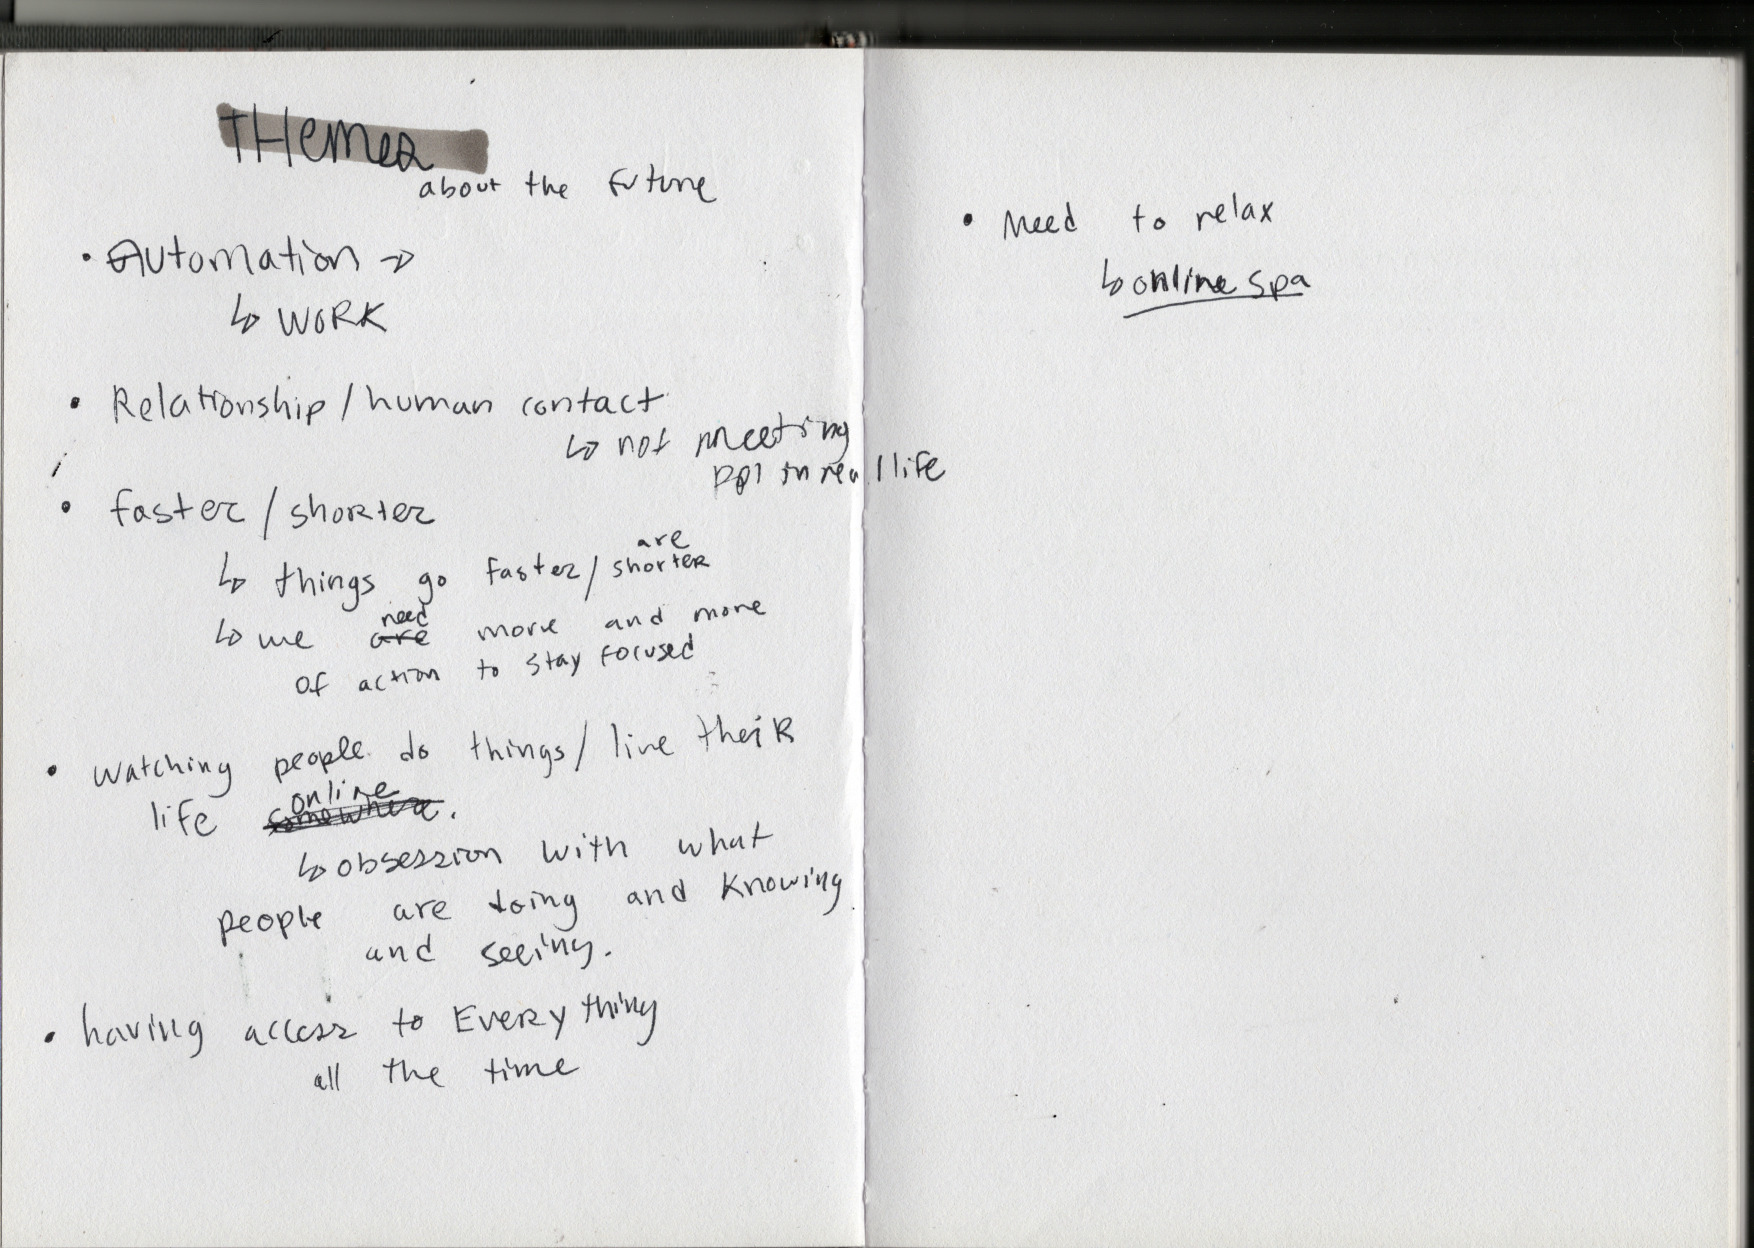 THemes
about the future
• Automation →
↳ WORK
• Relationship / human contact
↳ not meeting
ppl in real life
• faster / shorter
are
↳ things go faster / shorter
need
↳ we are more and more
of action to stay focused
• watching people do things / live their
online
life somewhere.
↳ obsession with what
people are doing and knowing
and seeing.
• having access to Everything
all the time
• Need to relax
↳ online spa